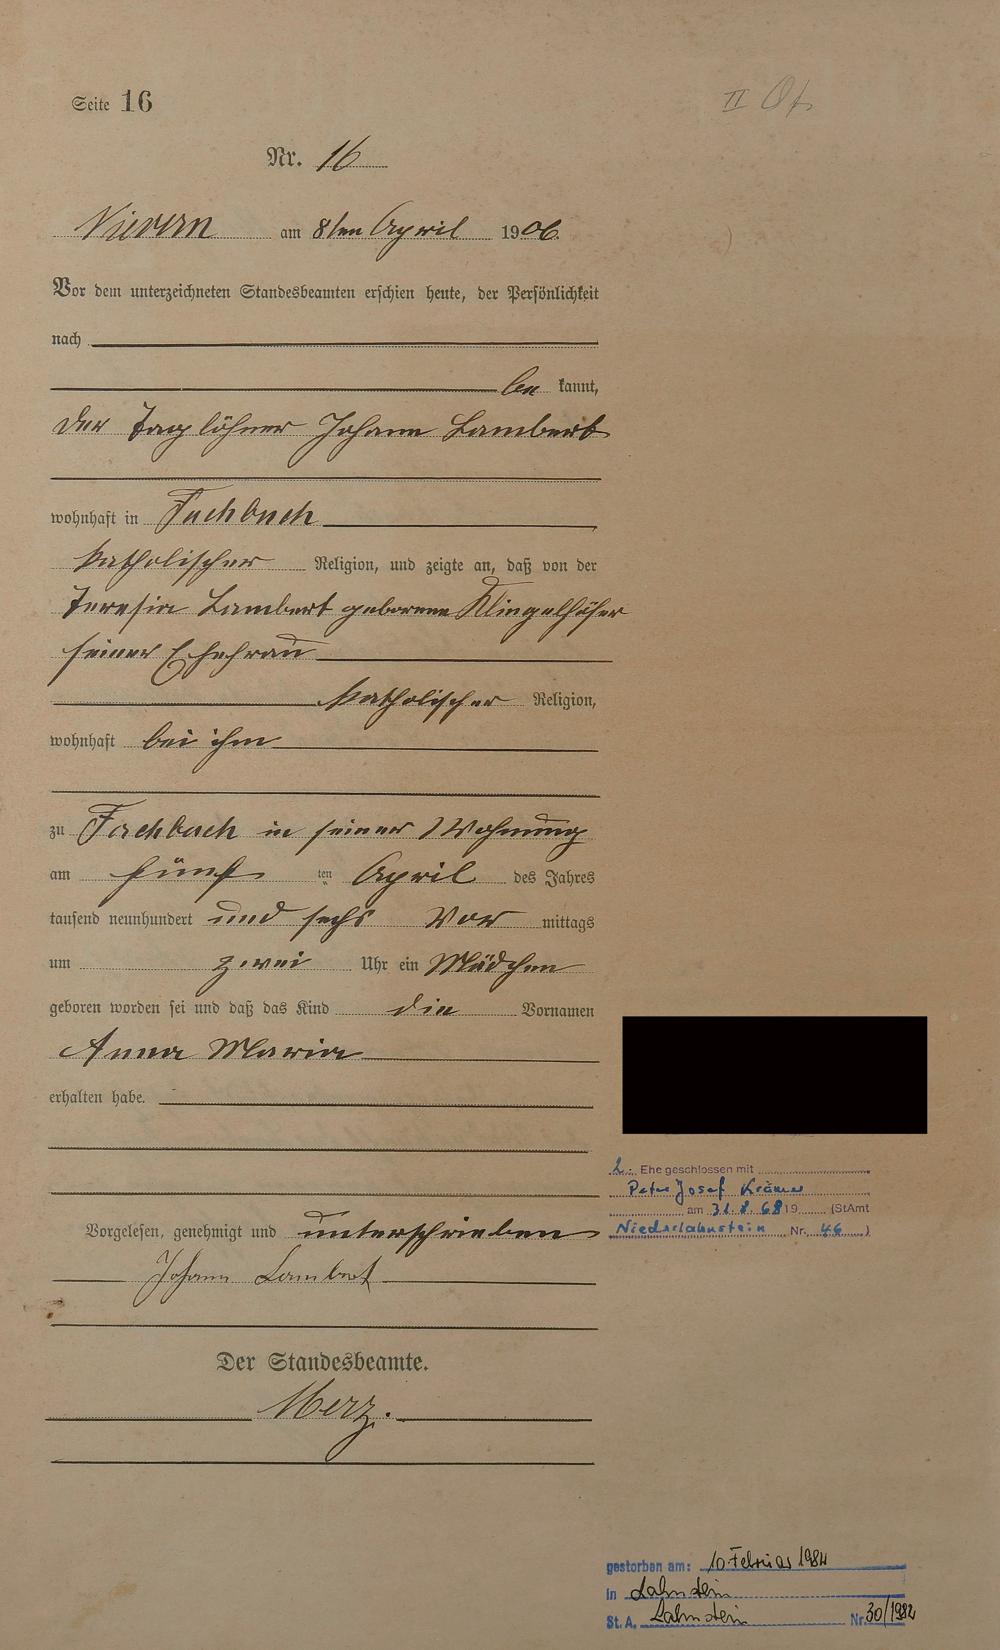 Seite 16
Nr. 16
Nievern am 8ten April 1906.
Vor dem unterzeichneten Standesbeamten erschien heute, der Persönlichkeit
nach
be kannt,
der Taglöhner Johann Lambert
wohnhaft in Fachbach
katholischer Religion, und zeigte an, daß von der
Teresia Lambert geborene Klingelhöfer
seiner Ehefrau
katholischer Religion,
wohnhaft bei ihm
zu Fachbach in seiner Wohnung
am fünf ten April des Jahres
tausend neunhundert und sechs Vor mittags
um zwei Uhr ein Mädchen
geboren worden sei und daß das Kind die Vornamen
Anna Maria
erhalten habe.
2. Ehe geschlossen mit
Peter Josef Krämer
am 31.8.68 19 (StAmt
Niederlahnstein Nr. 46 )
Vorgelesen, genehmigt und unterschrieben
Johann Lambert
Der Standesbeamte.
Merz.
gestorben am: 10. Februar
in Lahnstein
St. A. Lahnstein Nr. 30/1982